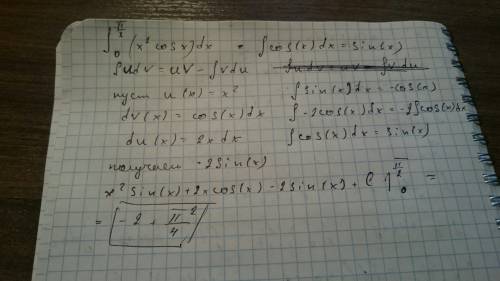 ∫₀^(π/2) (x² cos x) dx = ∫cos(x) dx = sin(x)
∫u dv = uv - ∫v du
пуст u(x) = x² ∫sin(x) dx = -cos(x)
dv(x) = cos(x) dx ∫-2cos(x) dx = -2∫cos(x) dx
du(x) = 2x dx ∫cos(x) dx = sin(x)
получаем -2sin(x)
x² sin(x) + 2x cos(x) - 2 sin(x) + C |₀^(π/2) =
= -2 + π²/4